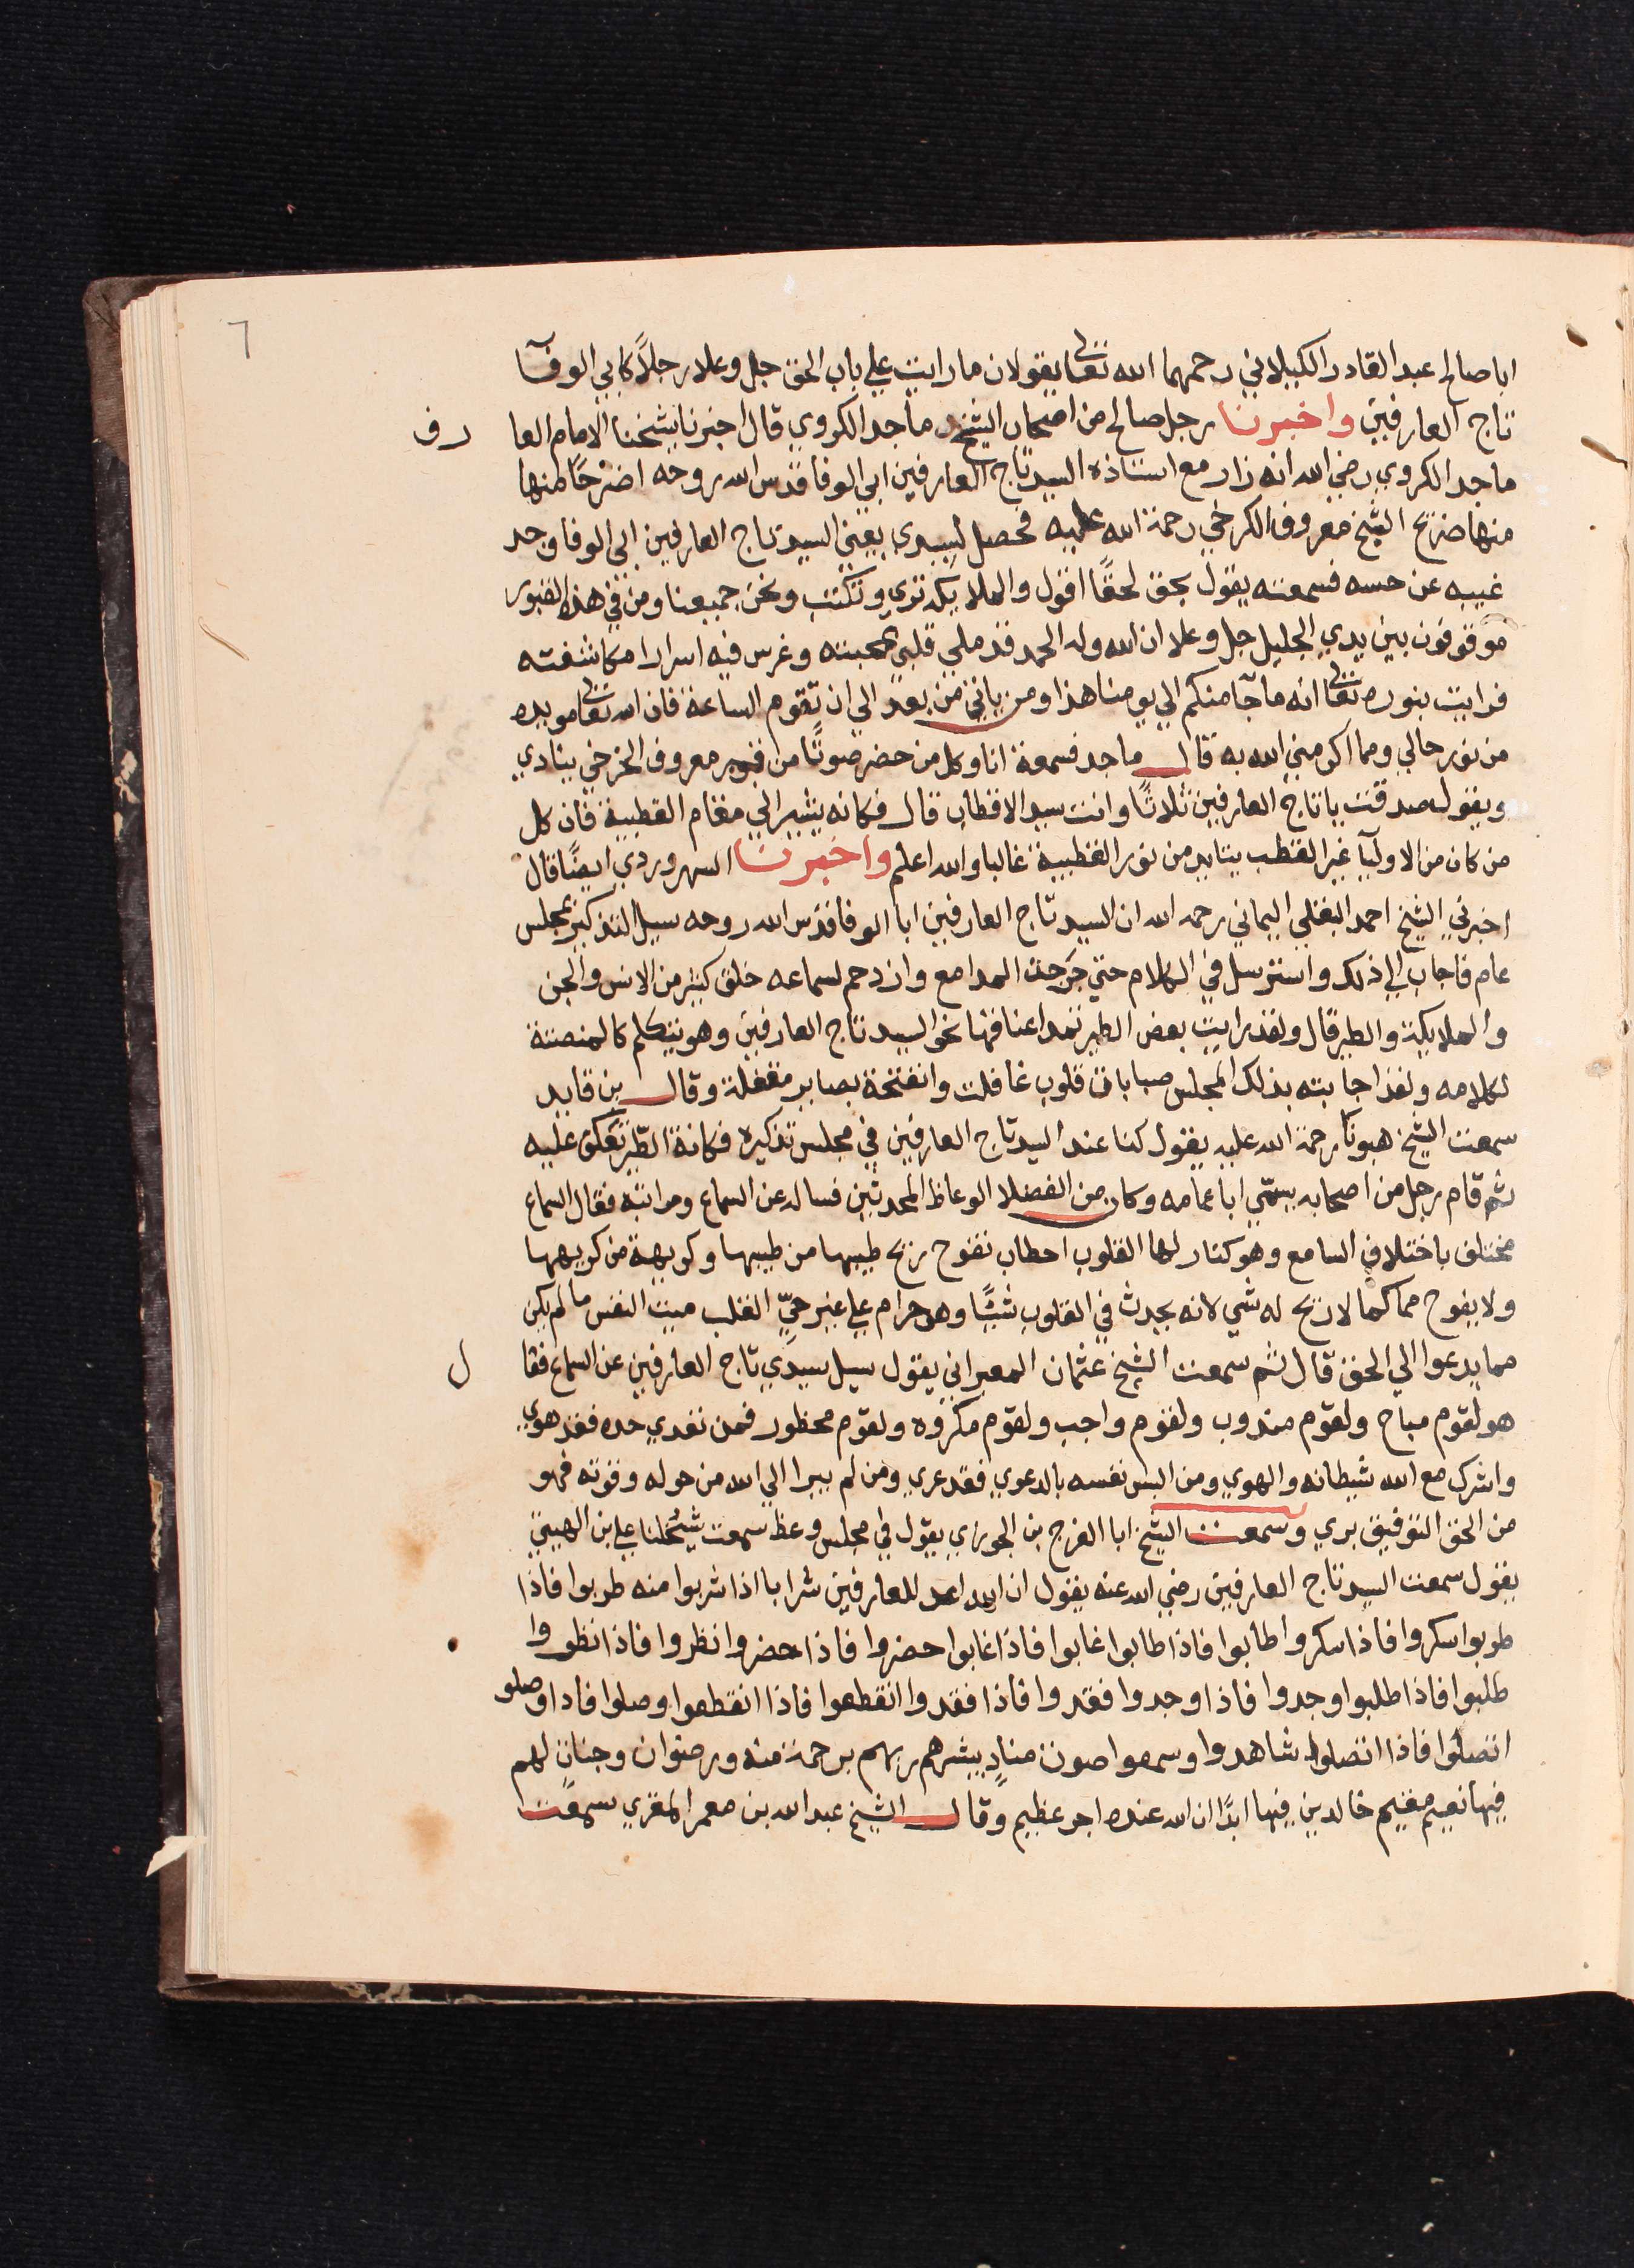 ٦
ابا صالح عبد القادر الكيلاني رحمهما الله تعالى يقولان ما رايت علي باب الحق جل وعلا رجلاً كابي الوفآ
تاج العارفين واخبرنا رجل صالح من اصحاب الشيخ ماجد الكروي قال اخبرنا شيخنا الامام العارف
ماجد الكروي رضي الله انه زار مع استاذه السيد تاج العارفين ابي الوفا قدس الله روحه اضرحًا منها
منها ضريح الشيخ معروف الكرخي رحمة الله عليه فحصل لسيدي يعني السيد تاج العارفين ابي الوفا وجد
غيبه عن حسه فسمعته يقول بحق لحقًا اقول والملايكه تري وتكتب ونحن جميعنا ومن في هذه القبور
موقوفون بين يدي الجليل جل وعلا ان الله وله الحمد قد ملي قلبي بمحبته وغرس فيه اسرارا مكاشفته
فرايت بنوره تعالى انه ما جآ منكم الي يومنا هذا ومن ياتي من بعد الي ان تقوم الساعة فان الله تعالى مويده
من نور حالي ومما اكرمني الله به قال ماجد فسمعة انا وكل من حضر صوتًا من قبر معروف الخرخي ينادي
ويقول صدقت يا تاج العارفين ثلاثًا وانت سيد الاقطاب قال فكانه يشير الي مقام القطبية فان كل
من كان من الاوليآ غير القطب يتايد من نور القطبية غالبا والله اعلم واخبرنا السهروردي ايضًا قال
اخبرني الشيخ احمد البقلي اليماني رحمه الله ان السيد تاج العارفين ابا الوفا قدس الله روحه سيل التذكير بمجلس
عام فاجاب الي ذلك واسترسل في الكلام حتي جرجت المدامع وازدحم لسماعه خلق كثير من الانس والجن
والملايكة والطير قال ولقد رايت بعض الطير تمد اعناقها نحو السيد تاج العارفين وهو يتكلم كالمنصتة
لكلامه ولقد اجابته بذلك المجلس صبابات قلوب غافلت وانفتحة بصاير مقفلة وقال بن قايد
سمعت الشيخ هبونا رحمة الله عليه يقول كنا عند السيد تاج العارفين في مجلس تذكيره فكانة الطير تعكف عليه
ثم قام رجل من اصحابه يسمّي ابا عمامه وكان من الفضلا الوعاظ المحدثين فساله عن السماع ومراتبه فقال السماع
مختلف باختلاف السامع وهو كنار لها القلوب احطاب تفوح ريح طيبها من طيبها وكريهة من كريهها
ولا يفوح مما كما لا ريح له شي لانه يحدث في القلوب شيًا وهو حرام علي غير حيّ القلب ميت النفس ما لم يكن
مما يدعوا الي الحق قال ثم سمعت الشيخ عثمان المعبراني يقول سيل سيدي تاج العارفين عن السماع فقال
هو لقوم مباح ولقوم مندوب ولقوم واجب ولقوم مكروه ولقوم محظور فمن تعدي حده فقد هوي
واشرك مع الله شيطانه والهوي ومن البس نفسه بالدعوي فقد عري ومن لم يبرا الي الله من حوله وقوته فهو
من الحق التوفيق بري وسمعت الشيخ ابا الفرج بن الجوزي يقول في مجلس وعظ سمعت شيخنا علي بن الهيتي
يقول سمعت السيد تاج العارفين رضي الله عنه يقول ان الله اعد للعارفين شرابا اذا شربوا منه طربوا فاذا
طربوا سكروا فاذا سكروا طابوا فاذا طابوا غابوا فاذا غابوا حضروا فاذا حضروا نظروا فاذا نظروا
طلبوا فاذا طلبوا وجدوا فاذا وجدوا فقدوا فاذا فقدوا انقطعوا فاذا انقطعوا وصلوا فاذا وصلو
اتصلوا فاذا اتصلوا شاهدوا وسمعوا صوت منادٍ يبشرهم ربهم برحمة منه ورضوان وجنات لهم
فيها نعيم مقيم خالدين فيها ابدًا ان الله عنده اجر عظيم وقال الشيخ عبد الله بن معمر المغربي سمعت